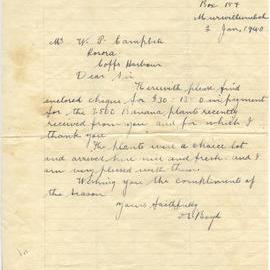 Box 154
Murwillumbah
2 Jan, 1940
Mr W. P. Campbell
Korora
Coffs Harbour
Dear Sir
Herewith please find
enclosed cheque for £30-15-0 in payment
for the 2500 Banana plants recently
received from you and for which I
thank you
The plants were a choice lot
and arrived here nice and fresh and I
am very pleased with them.
Wishing you the compliments of
the season
Yours faithfully
Boyd